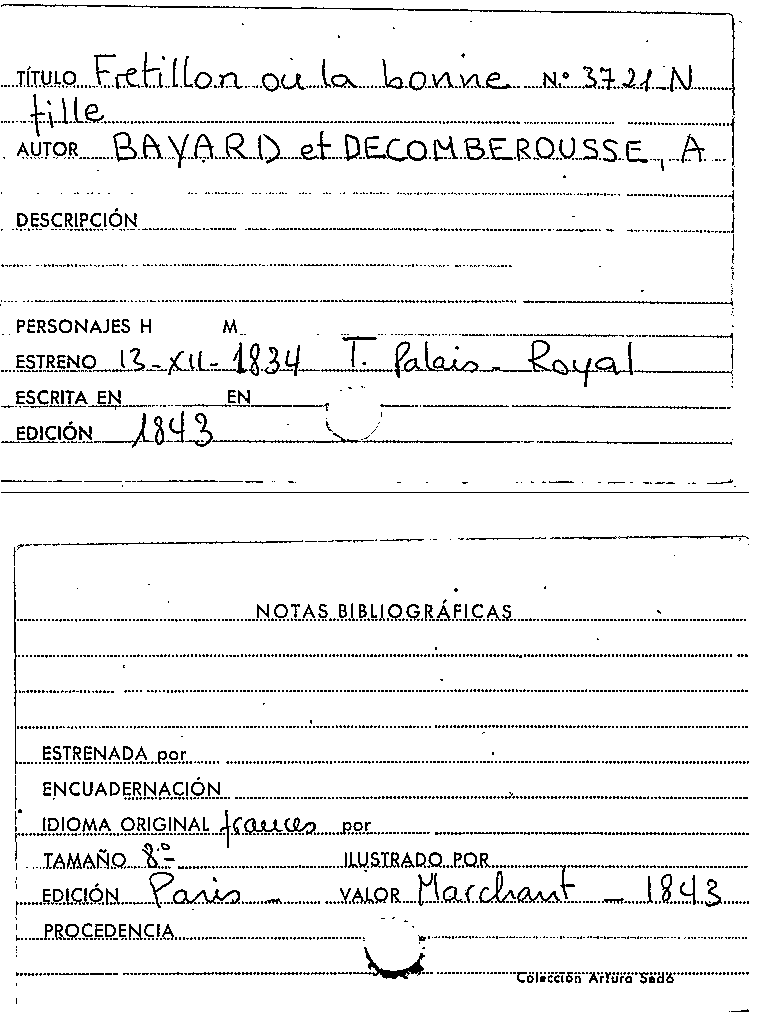 TÍTULO Fretillon ou la bonne N.º 3721-N
fille
AUTOR BAYARD et DECOMBEROUSSE, A
DESCRIPCIÓN
PERSONAJES H M
ESTRENO 13-XII-1834 T. Palais-Royal
ESCRITA EN EN
EDICIÓN 1843
NOTAS BIBLIOGRÁFICAS
ESTRENADA por
ENCUADERNACIÓN
IDIOMA ORIGINAL frances por
TAMAÑO 8º ILUSTRADO POR
EDICIÓN Paris - VALOR Marchant - 1843
PROCEDENCIA
Colección Arturo Sedó